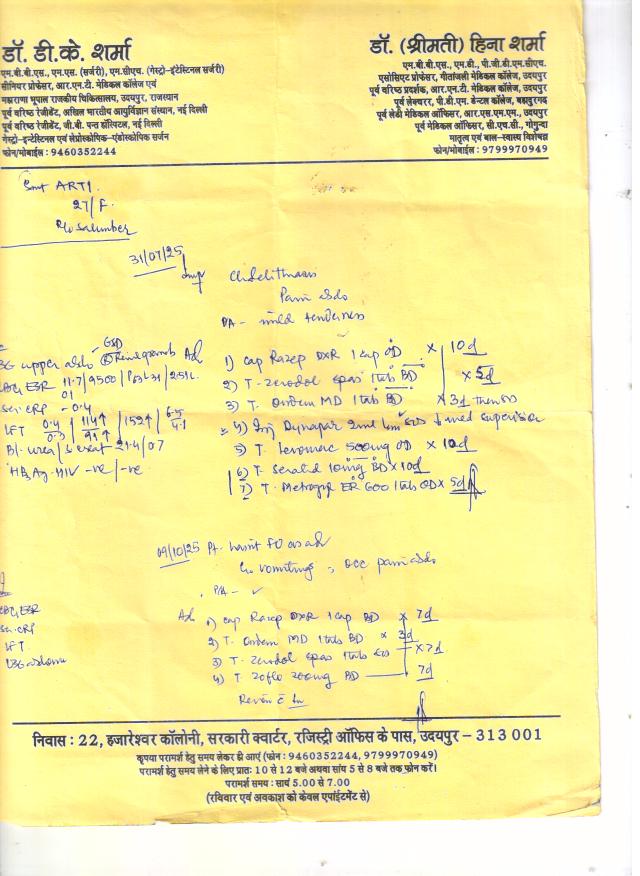 डॉ. डी.के. शर्मा
एम.बी.बी.एस., एम.एस. (सर्जरी), एम.सीएच. (गेस्ट्रो-इंटेस्टिनल सर्जरी)
सीनियर प्रोफेसर, आर.एन.टी. मेडिकल कॉलेज एवं
महाराणा भूपाल राजकीय चिकित्सालय, उदयपुर, राजस्थान
पूर्व वरिष्ठ रेजीडेंट, अखिल भारतीय आयुर्विज्ञान संस्थान, नई दिल्ली
पूर्व वरिष्ठ रेजीडेंट, जी.बी. पन्त हॉस्पिटल, नई दिल्ली
गेस्ट्रो-इन्टेस्टिनल एवं लेप्रोस्कोपिक-एंडोस्कोपिक सर्जन
फोन/मोबाईल : 9460352244
डॉ. (श्रीमती) हिना शर्मा
एम.बी.बी.एस., एम.डी., पी.जी.डी.एम.सीएच.
एसोसिएट प्रोफेसर, गीतांजली मेडिकल कॉलेज, उदयपुर
पूर्व वरिष्ठ प्रदर्शक, आर.एन.टी. मेडिकल कॉलेज, उदयपुर
पूर्व लेक्चरर, पी.डी.एम. डेन्टल कॉलेज, बहादुरगढ़
पूर्व लेडी मेडिकल ऑफिसर, आर.एस.एम.एम., उदयपुर
पूर्व मेडिकल ऑफिसर, सी.एच.सी., गोगुन्दा
मातृत्व एवं बाल-स्वास्थ्य विशेषज्ञ
फोन/मोबाईल : 9799970949
Smt ARTI
27/F.
R/o Salumber
31/07/25
Cholelithiasis
Pain abdo
PA - mild tenderness
USG upper abdo GSD Adv
CBC, ESR 11.7/9500/P63L31/2.51L
01
Ser. CRP - 0.4
LFT 0.4/0.3 114↑/91↑ 152↑ 6.5/4.1
Bl. urea/S creat 21.4/0.7
HBsAg. HIV -ve/-ve
1) Cap Razep DXR 1 cap OD × 10d
2) T. Zerodol spas 1tab BD × 5d
3) T. Ondem MD 1tab BD × 3d then SOS
4) Inj Dynapar 2ml Im SOS under med supervision
5) T. Levomac 500mg OD × 10d
6) T. 10mg BD × 10d
7) T. Metrogyl ER 600 1tab OD × 5d
09/10/25 Pt.
C/o vomitings, occ pain abdo
P/A - ✓
CBC, ESR
Ser. CRP
LFT
USG abdomen
Adv 1) Cap Razep DXR 1 cap BD × 7d
2) T. Ondem MD 1tab BD × 3d
3) T. Zerodol spas 1tab × 7d
4) T. Zoflo 200mg BD — 7d
Review c
निवास : 22, हजारेश्वर कॉलोनी, सरकारी क्वार्टर, रजिस्ट्री ऑफिस के पास, उदयपुर - 313 001
कृपया परामर्श हेतु समय लेकर ही आएं (फोन : 9460352244, 9799970949)
परामर्श हेतु समय लेने के लिए प्रातः 10 से 12 बजे अथवा सांय 5 से 8 बजे तक फोन करें।
परामर्श समय : सायं 5.00 से 7.00
(रविवार एवं अवकाश को केवल एपॉइंटमेंट से)